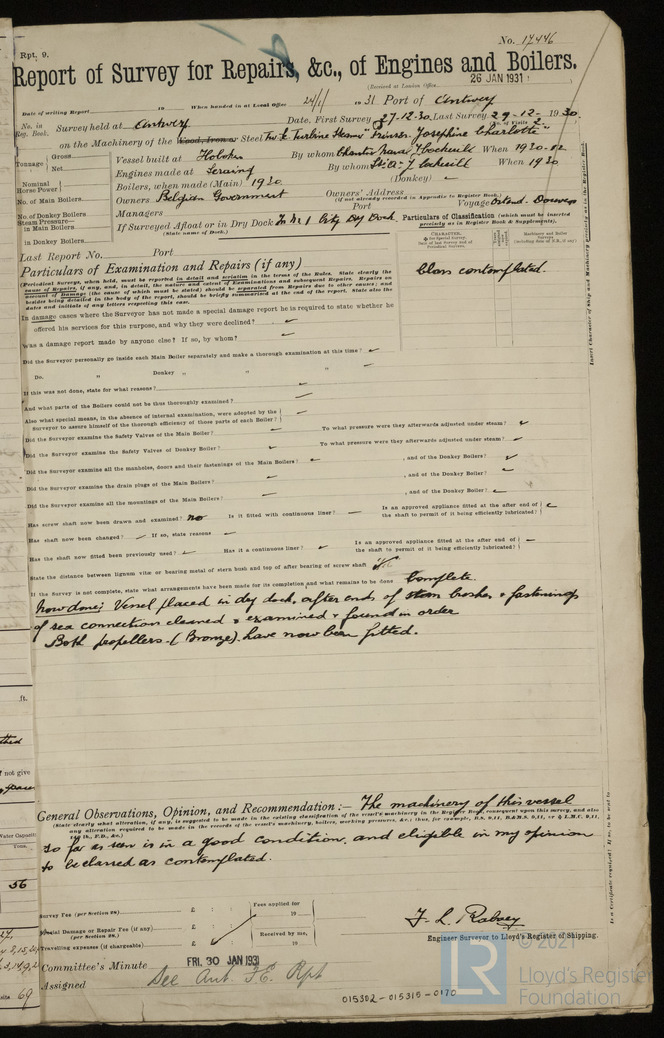 Rpt. 9.
No. 17446
Report of Survey for Repairs, &c., of Engines and Boilers.
(Received at London Office
26 JAN 1931
Date of writing Report 19 When handed in at Local Office 24/1/ 1931 Port of Antwerp
No. in Reg. Book. Survey held at Antwerp Date, First Survey 27-12-30 Last Survey 29-12-1930
No. of Visits 2
on the Machinery of the Wood, Iron or Steel Tw. S. Turbine Steamer "Prinses Josephine Charlotte"
Tonnage Gross Net
Vessel built at Hoboken By whom Chantier Naval J Cockerill When 1930-12
Engines made at Seraing By whom St. A. J. Cockerill When 1930
Nominal Horse Power
Boilers, when made (Main) 1930 (Donkey)
No. of Main Boilers
Owners Belgian Government Owners' Address
(if not already recorded in Appendix to Register Book.)
No. of Donkey Boilers
Managers Port Voyage Ostend - Dover
Steam Pressure— in Main Boilers
in Donkey Boilers
If Surveyed Afloat or in Dry Dock In No 1 City Dry Dock
(State name of Dock.)
Particulars of Classification (which must be inserted precisely as in Register Book & Supplements).
Last Report No. Port
Particulars of Examination and Repairs (if any)
Class contemplated.
(Periodical Surveys, when held, must be reported in detail and seriatim in the terms of the Rules. State clearly the
cause of Repairs, if any, and, in detail, the nature and extent of Examinations and subsequent Repairs. Repairs on
account of Damage (the cause of which must be stated) should be separated from Repairs due to other causes; and
besides being detailed in the body of the report, should be briefly summarised at the end of the report. State also the
dates and initials of any letters respecting this case.
In damage cases where the Surveyor has not made a special damage report he is required to state whether he
offered his services for this purpose, and why they were declined?
Was a damage report made by anyone else? If so, by whom?
Did the Surveyor personally go inside each Main Boiler separately and make a thorough examination at this time?
Do. " Donkey " " "
If this was not done, state for what reasons?
And what parts of the Boilers could not be thus thoroughly examined?
Also what special means, in the absence of internal examination, were adopted by the
Surveyor to assure himself of the thorough efficiency of those parts of each Boiler?
Did the Surveyor examine the Safety Valves of the Main Boiler? To what pressure were they afterwards adjusted under steam?
Did the Surveyor examine the Safety Valves of Donkey Boiler? To what pressure were they afterwards adjusted under steam?
Did the Surveyor examine all the manholes, doors and their fastenings of the Main Boilers? , and of the Donkey Boiler?
Did the Surveyor examine the drain plugs of the Main Boilers? , and of the Donkey Boiler?
Did the Surveyor examine all the mountings of the Main Boilers? , and of the Donkey Boiler?
Has screw shaft now been drawn and examined? no Is it fitted with continuous liner? Is an approved appliance fitted at the after end of the shaft to permit of it being efficiently lubricated?
Has shaft now been changed? If so, state reasons
Has the shaft now fitted been previously used? Has it a continuous liner? Is an approved appliance fitted at the after end of the shaft to permit of it being efficiently lubricated?
State the distance between lignum vitæ or bearing metal of stern bush and top of after bearing of screw shaft
If the Survey is not complete, state what arrangements have been made for its completion and what remains to be done Complete.
Now done: Vessel placed in dry dock, after ends of stern bushes & fastenings
of sea connection cleaned & examined & found in order
Both propellers (Bronze) have now been fitted.
General Observations, Opinion, and Recommendation:— The machinery of this vessel
so far as seen is in a good condition, and eligible in my opinion
to be classed as contemplated.
Survey Fee (per Section 29) £ : : Fees applied for 19
Special Damage or Repair Fee (if any) (per Section 29.) £ : :
Travelling expenses (if chargeable) £ : : Received by me, 19
Engineer Surveyor to Lloyd's Register of Shipping.
Committee's Minute FRI. 30 JAN 1931
Assigned See Ant. F.E. Rpt
015302-015315-0170
© 2021
LR
Lloyd's Register
Foundation